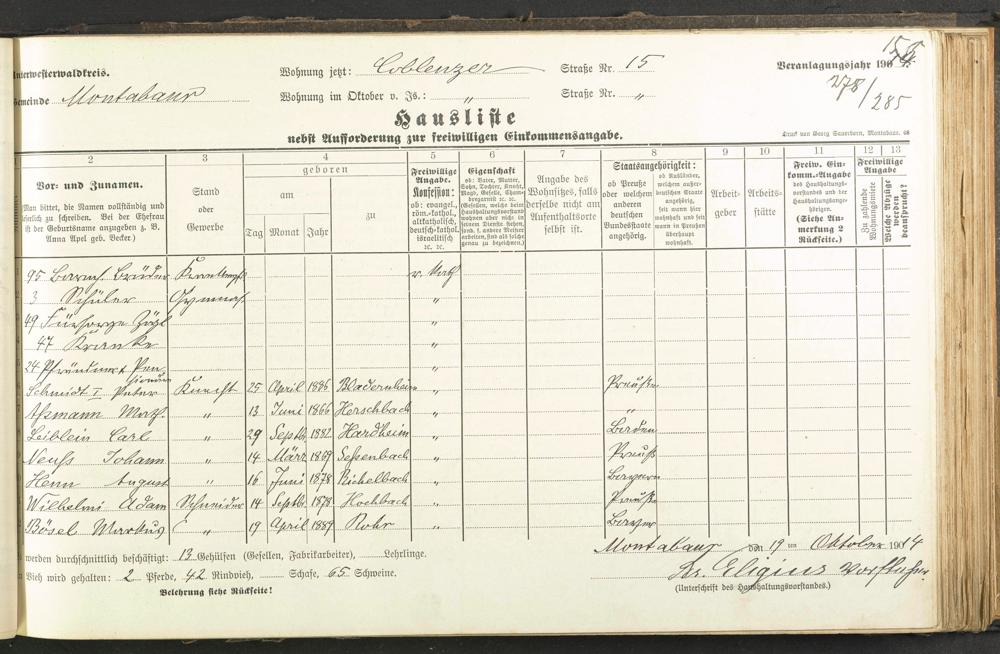 Unterwesterwaldkreis.
Wohnung jetzt: Coblenzer Straße Nr. 15
Veranlagungsjahr 190
Gemeinde Montabaur
Wohnung im Oktober v. Js.: " Straße Nr. "
278/285
Hausliste
nebst Aufforderung zur freiwilligen Einkommensangabe.
Druck von Georg Sauerborn, Montabaur.
2 3 4 5 6 7 8 9 10 11 12 13
Vor- und Zunamen.
Man bittet, die Namen vollständig und
deutlich zu schreiben. Bei der Ehefrau
ist der Geburtsname anzugeben z. B.
Anna Apel geb. Becker.)
Stand
oder
Gewerbe
geboren
am
zu
Tag Monat Jahr
Freiwillige
Angabe.
Konfession:
ob: evangel.,
röm.-kathol.,
altkatholisch,
deutsch-kathol.
israelitisch
ec. ec.
Eigenschaft
ob: Vater, Mutter,
Sohn, Tochter, Knecht,
Magd, Geselle, Cham-
bregarnist ec. ec.
(Gesellen, welche beim
Haushaltungsvorstand
wohnen aber nicht in
seinem Dienste stehen,
sond. f. andere Meister
arbeiten, sind als solche
genau zu bezeichnen.)
Angabe des
Wohnsitzes, falls
derselbe nicht am
Aufenthaltsorte
selbst ist.
Staatsangehörigkeit:
ob Preuße
oder welchem
anderen
deutschen
Bundesstaate
angehörig.
ob Ausländer,
welchem außer-
deutschen Staate
angehörig,
seit wann hier
wohnhaft und seit
wann in Preußen
überhaupt
wohnhaft.
Arbeit-
geber
Arbeits-
stätte
Freiw. Ein-
komm.-Angabe
des Haushaltungs-
vorstandes und der
Haushaltungsange-
hörigen.
(Siehe An-
merkung 2
Rückseite.)
Freiwillige
Angabe
Zu zahlende
Wohnungsmiete
Welche Abzüge
werden
beansprucht?
95 Barmh. Brüder r. Kath
3 Schüler Gymnas. "
49 Fürsorge Zögl "
47 Kranke "
24 Pfründner Pen-
sionäre "
Schmidt I Peter Knecht 25 April 1886 Bladernheim " Preuße
Assmann Math. " 13 Juni 1866 Herschbach " "
Leiblein Carl " 29 Septbr. 1882 Hardheim " Baden
Neuss Johann " 14 März 1869 Sessenbach " Preuß
Henn August " 16 Juni 1878 " Bayern
Wilhelmi Adam Schneider 14 Septbr. 1878 Hochbach " Preuße
Bösel Markus " 19 April 1889 Rohr " Bayer
werden durchschnittlich beschäftigt: 13 Gehülfen (Gesellen, Fabrikarbeiter), Lehrlinge.
Montabaur den 19 ten Oktober 1904
Vieh wird gehalten: 2 Pferde, 42 Rindvieh, Schafe, 65 Schweine.
Br. Eligius Vorsteher.
(Unterschrift des Haushaltungsvorstandes.)
Belehrung siehe Rückseite!